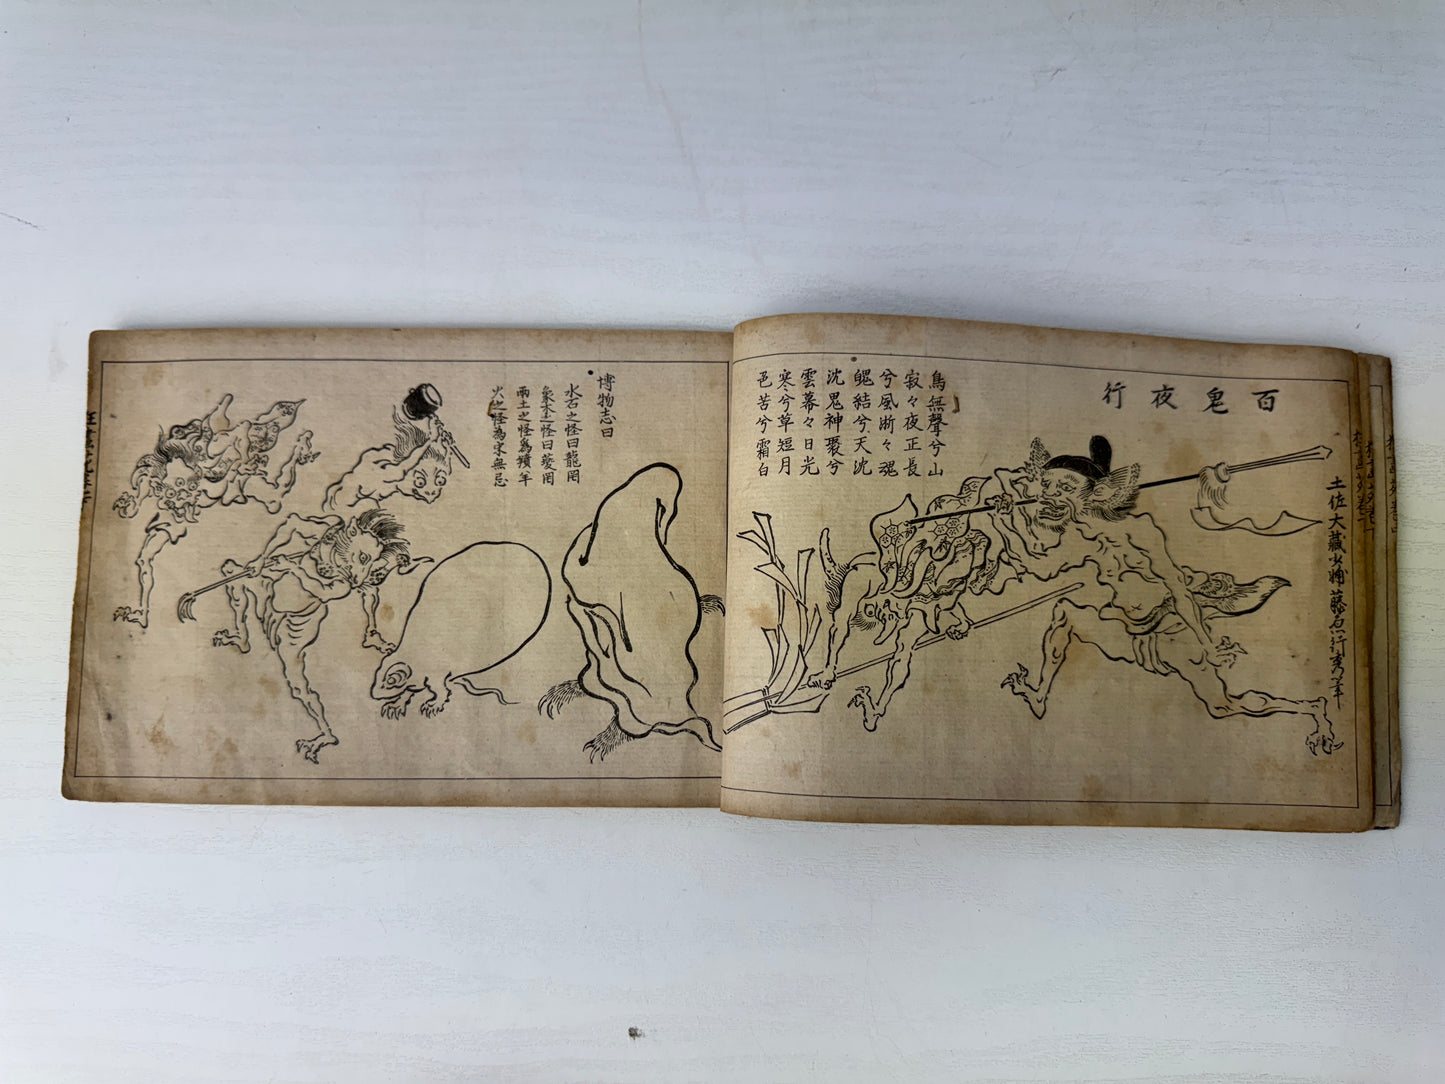 百鬼夜行
土佐大藏少輔藤原行秀筆
鳥無聲兮山
寂々夜正長
兮風淅々魂
魄結兮天沈
沈鬼神聚兮
雲幕々日光
寒兮草短月
色苦兮霜白
博物志曰
水石之怪曰龍罔
象木之怪曰夔罔
兩土之怪為羊
火之怪為宋無忌